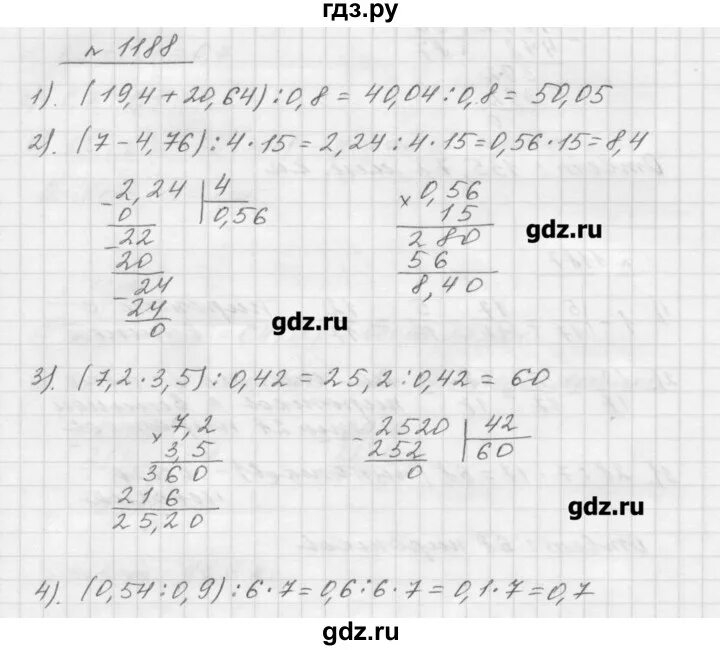 гдз.ру
№ 1188
1). (19,4 + 20,64) : 0,8 = 40,04 : 0,8 = 50,05
2). (7 - 4,76) : 4 · 15 = 2,24 : 4 · 15 = 0,56 · 15 = 8,4
- 2,24 | 4
0 0,56
- 22
20
- 24
24
0
× 0,56
15
280
56
8,40
gdz.ru
gdz.ru
3). (7,2 · 3,5) : 0,42 = 25,2 : 0,42 = 60
× 7,2
3,5
360
216
25,20
- 2520 | 42
252 60
0
gdz.ru
4). (0,54 : 0,9) : 6 · 7 = 0,6 : 6 · 7 = 0,1 · 7 = 0,7
gdz.ru